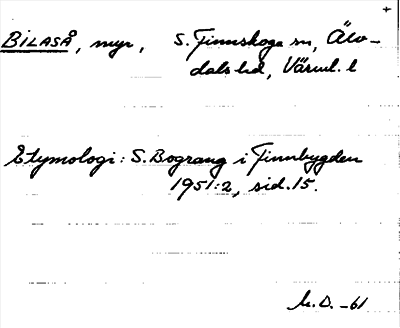 +
BILASÅ, myr, S. Finnskoga sn, Älv-
dals hd, Värml. l
Etymologi: S. Bograng i Finnbygden
1951:2, sid. 15.
M.O. -61